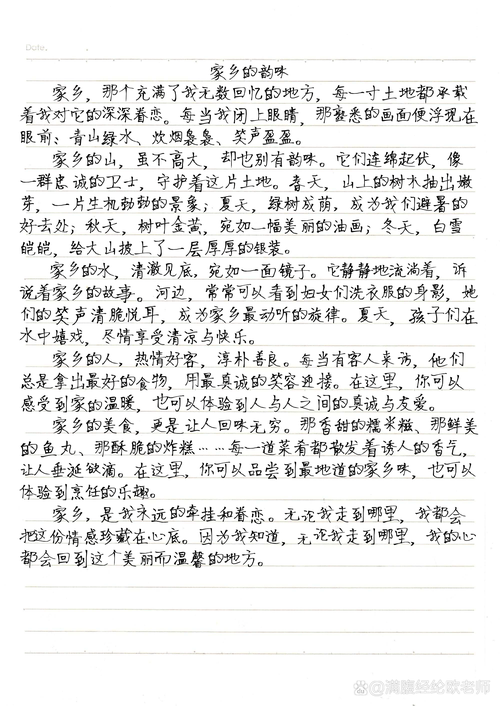 Date.
家乡的韵味
家乡，那个充满了我无数回忆的地方，每一寸土地都承载
着我对它的深深眷恋。每当我闭上眼睛，那熟悉的画面便浮现在
眼前：青山绿水、炊烟袅袅、笑声盈盈。
家乡的山，虽不高大，却也别有韵味。它们连绵起伏，像
一群忠诚的卫士，守护着这片土地。春天，山上的树木抽出嫩
芽，一片生机勃勃的景象；夏天，绿树成荫，成为我们避暑的
好去处；秋天，树叶金黄，宛如一幅美丽的油画；冬天，白雪
皑皑，给大山披上了一层厚厚的银装。
家乡的水，清澈见底，宛如一面镜子。它静静地流淌着，诉
说着家乡的故事。河边，常常可以看到妇女们洗衣服的身影，她
们的笑声清脆悦耳，成为家乡最动听的旋律。夏天，孩子们在
水中嬉戏，尽情享受清凉与快乐。
家乡的人，热情好客，淳朴善良。每当有客人来访，他们
总是拿出最好的食物，用最真诚的笑容迎接。在这里，你可以
感受到家的温暖，也可以体验到人与人之间的真诚与友爱。
家乡的美食，更是让人回味无穷。那香甜的糯米糍、那鲜美
的鱼丸、那酥脆的炸糕……每一道菜肴都散发着诱人的香气，
让人垂涎欲滴。在这里，你可以品尝到最地道的家乡味，也可以
体验到烹饪的乐趣。
家乡，是我永远的牵挂和眷恋。无论我走到哪里，我都会
把这份情感珍藏在心底。因为我知道，无论我走到哪里，我的心
都会回到这个美丽而温馨的地方。
@满腹经纶欧老师